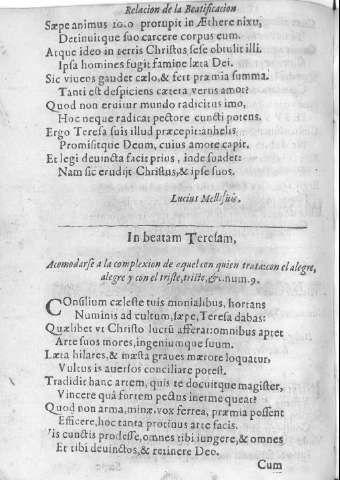 Relacion de la Beatificacion
Sæpe animus toto prorupit in Æthere nixu,
Detinuitque suo carcere corpus eum.
Atque ideo in terris Christus sese obtulit illi.
Ipsa homines fugit famine læta Dei.
Sic viuens gaudet cælo, & fert præmia summa.
Tanti est despiciens cætera verus amor?
Quod non eruitur mundo radicitus imo,
Hoc neque radicat pectore cuncti potens.
Ergo Teresa suis illud præcepit: anhelis
Promisitque Deum, cuius amore capit.
Et legi deuincta facit prius, inde suadet:
Nam sic erudijt Christus, & ipse suos.
Lucius Mellifuis.
In beatam Teresam,
Acomodarse a la complexion de aquel con quien trata: con el alegre,
alegre y con el triste, triste, &c. num. 9.
COnsilium cæleste tuis monialibus, hortans
Numinis ad cultum, sæpe, Teresa dabas:
Quælibet vt Christo lucrū afferat: omnibus aptet
Arte suos mores, ingeniumque suum.
Læta hilares, & mæsta graues mærore loquatur,
Vultus is auersos conciliare potest.
Tradidit hanc artem, quis te docuitque magister,
Vincere quâ fortem pectus inerme queat?
Quod non arma, minæ, vox ferrea, præmia possent
Efficere, hoc tanta protinus arte facis.
Vis cunctis prodesse, omnes tibi iungere, & omnes
Et tibi deuinctos, & retinere Deo.
Cum